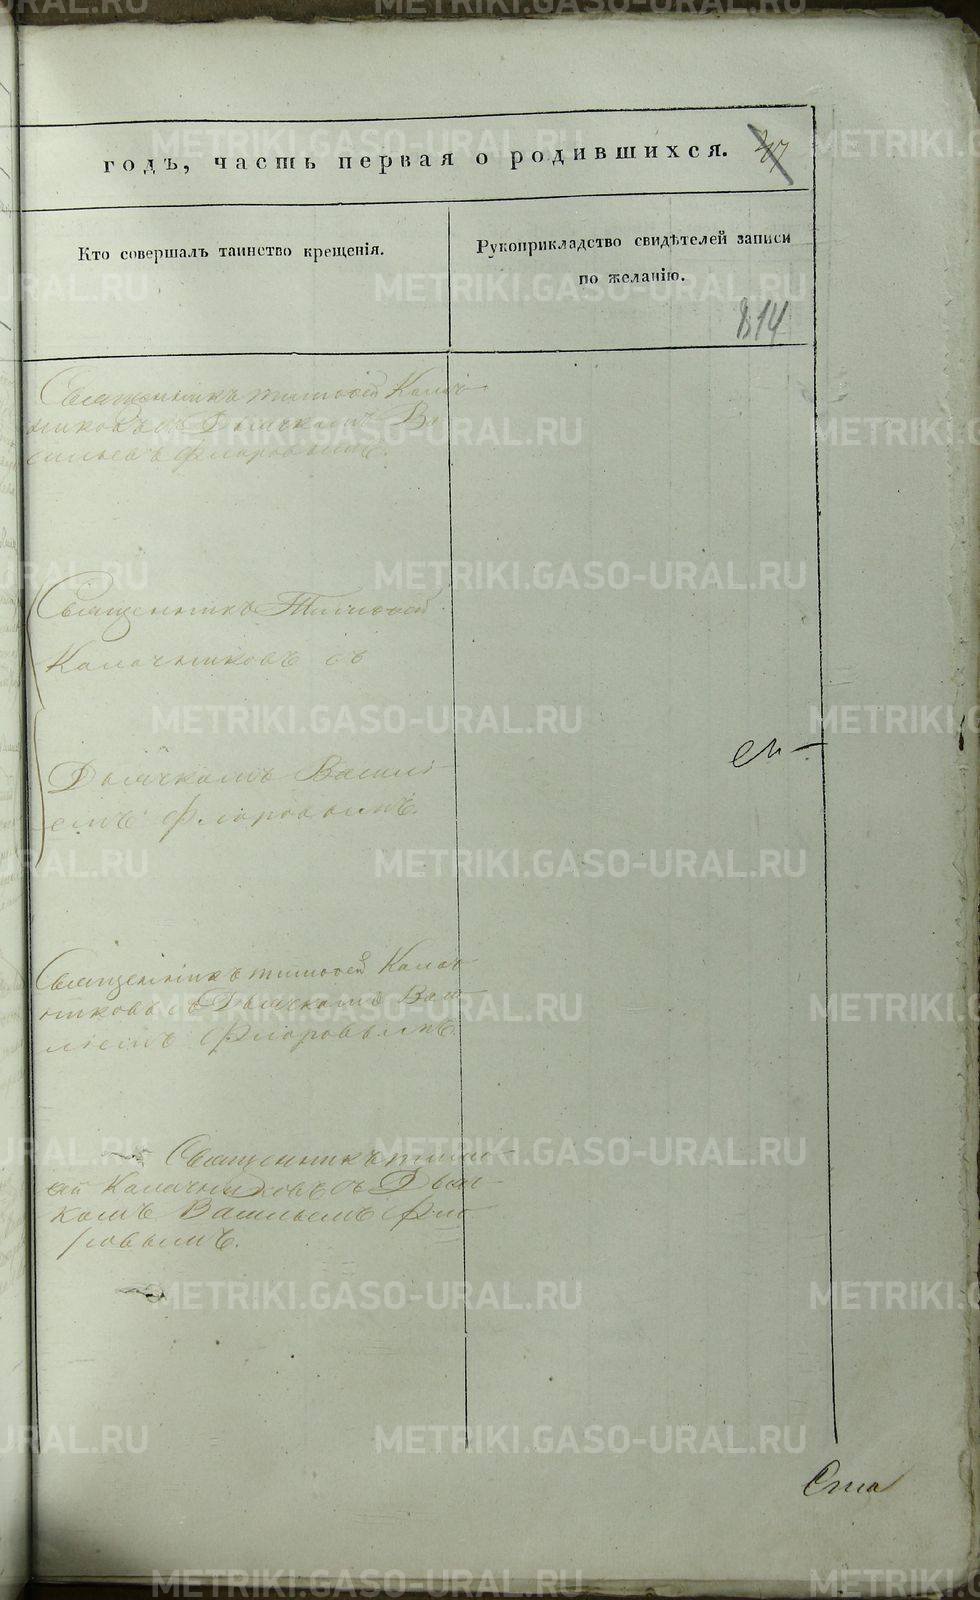 годъ, часть первая о родившихся.
Кто совершалъ таинство крещенія.
Рукоприкладство свидѣтелей записи
по желанію.
814
Священникъ Тимоѳей Калач-
никовъ съ Дьячкомъ Ва
сильевъ Флоровымъ.
Священникъ Тимоѳей
Калачниковъ съ
Дьячкомъ Васили-
емъ Флоровымъ.
Священникъ Тимоѳей Калач-
никовъ съ Дьячкомъ Васи-
ліемъ Флоровымъ.
Священникъ Тимо-
ѳей Калачниковъ съ Дьяч-
комъ Васильемъ Фло
ровымъ.
METRIKI.GASO-URAL.RU